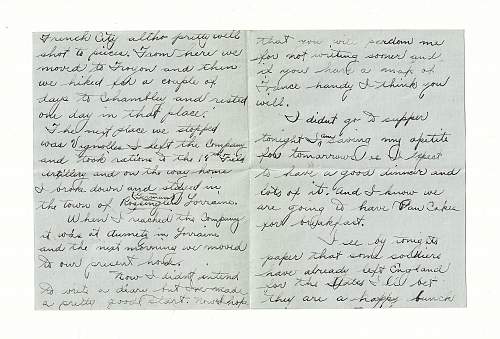 French City altho pretty well
shot to pieces. From here we
moved to Troyon and then
we hiked for a couple of
days to Chambley and rested
one day in that place.
The next place we stopped
was Vignolles I left the Company
and took rations to the 18th Field
artillery and on the way home
I broke down and stayed in
the town of Lorraine.
When I reached the Company
it was at Aumetz in Lorrain
and the next morning we moved
to our present hold.
Now I didnt intend
to write a diary but Ive made
a pretty good start. Now I hope
that you will pardom me
for not writing sooner and
if you have a map of
France handy I think you
will.
I didnt go to supper
tonight I am saving my apetite
for tomorrow as I expect
to have a good dinner and
lots of it. and I know we
are going to have Pan Cakes
for breakfast.
I see by tonights
paper that some soldiers
have already left England
for the States I'll bet
they are a happy bunch